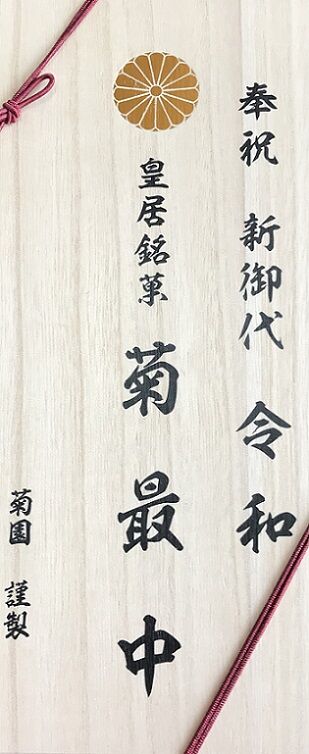 奉祝 新御代 令和
皇居銘菓 菊最中
菊園 謹製